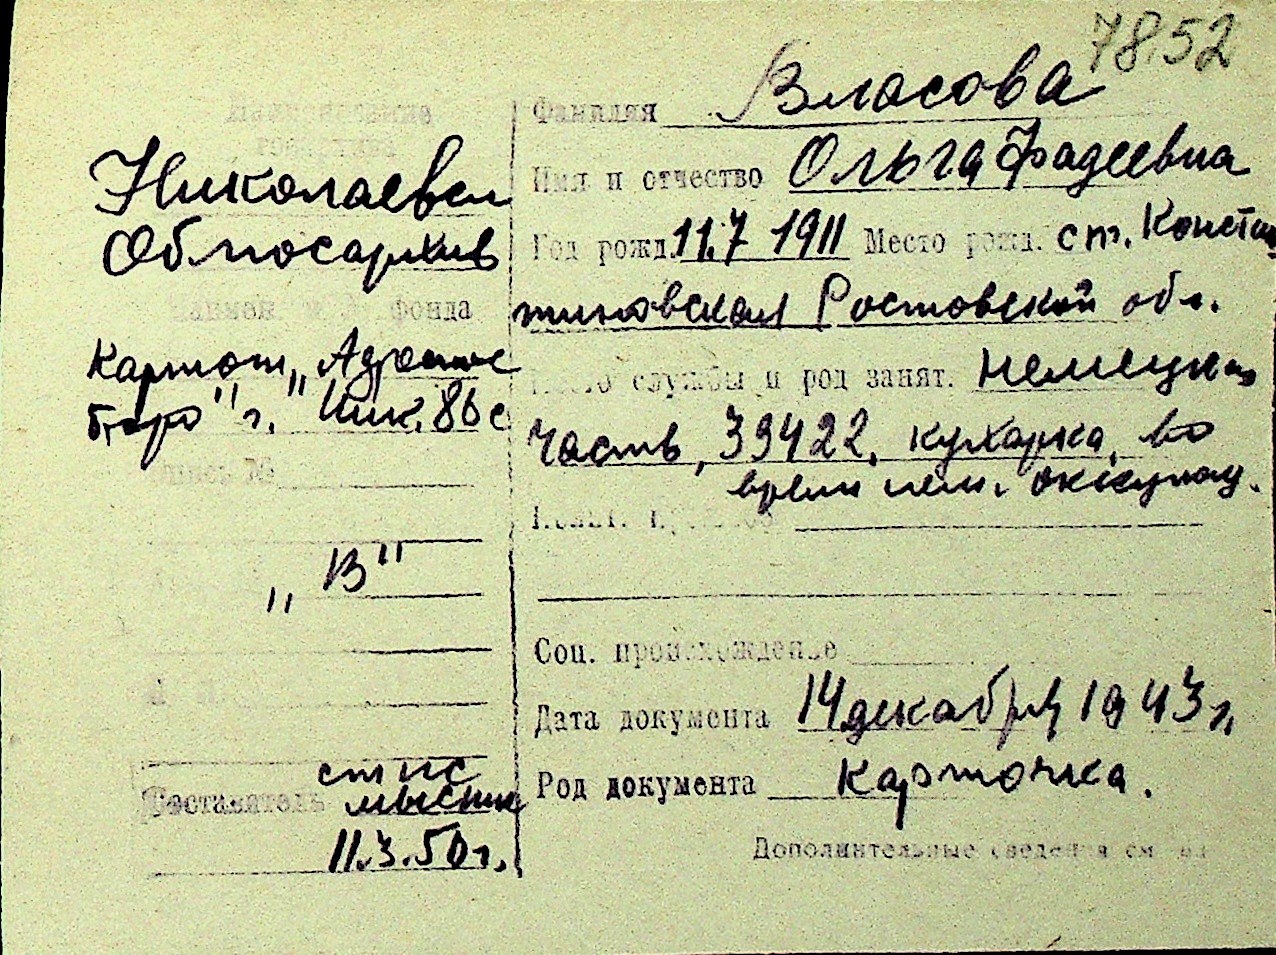 7852
Наименование
госархива
Николаевск
Облгосархив
Наимен. и № фонда
Картот. „Адресное
бюро" г. Ник. 86 с
Опись №
„В"
Составитель
11.3.50 г.
Фамилия Власова
Имя и отчество Ольга Фадеевна
Год рожд. 11.7 1911 Место рожд. ст. Констан
тиновская Ростовской обл.
Место службы и род занят. немецкая
часть, 39422, кухарка, во
время нем. оккупац.
Соц. происхождение
Дата документа 14 декабря 1943 г.
Род документа Карточка.
Дополнительные сведения см. на